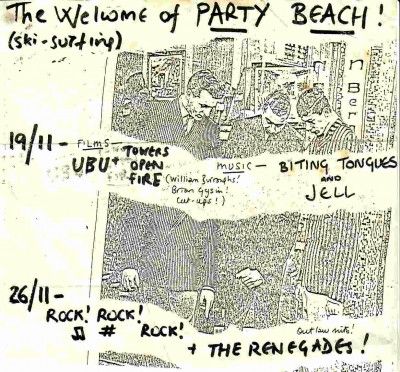 The Welcome of PARTY BEACH!
(ski-surfing)
19/11 - FILMS - UBU + TOWERS OPEN FIRE
(William Burroughs! Brian Gysin! Cut-ups!)
MUSIC - BITING TONGUES
AND
JELL
26/11 -
ROCK! ROCK!
♫ # ROCK!
Outlaw nite!
+ THE RENEGADES!